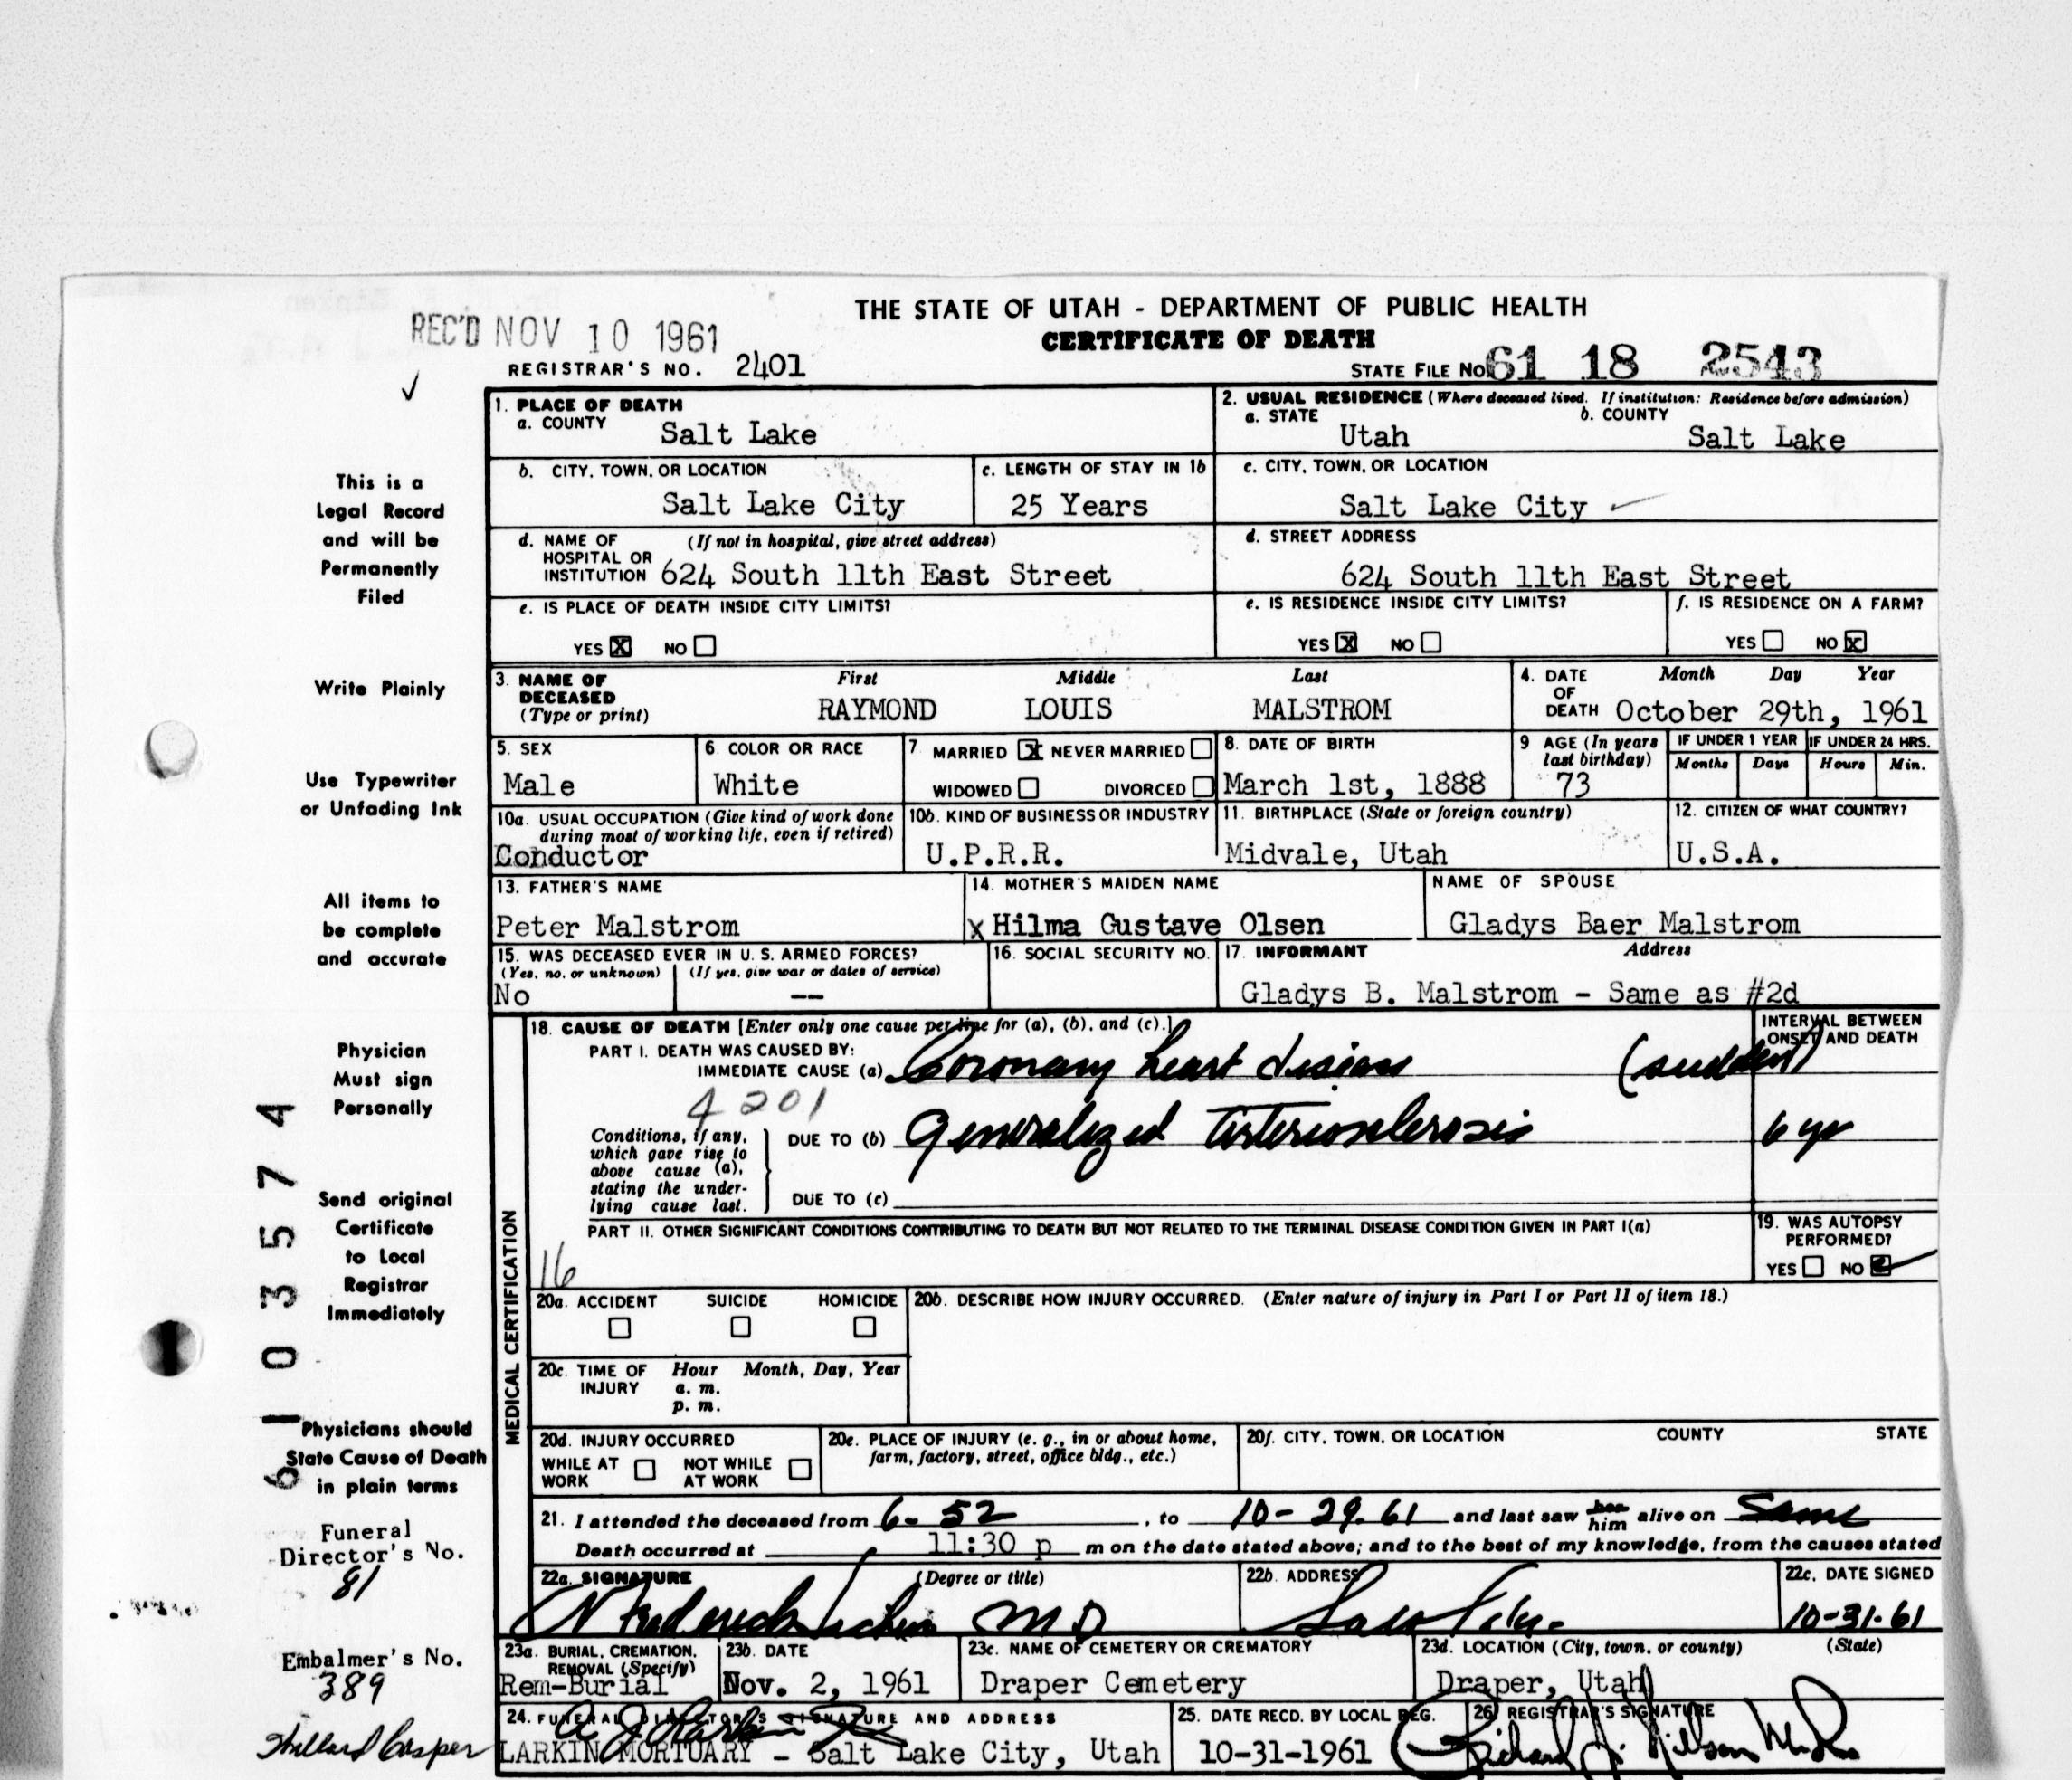 THE STATE OF UTAH - DEPARTMENT OF PUBLIC HEALTH
CERTIFICATE OF DEATH
REC'D NOV 10 1961
REGISTRAR'S NO. 2401
STATE FILE No. 61 18 2543
1. PLACE OF DEATH
a. COUNTY Salt Lake
2. USUAL RESIDENCE (Where deceased lived. If institution: Residence before admission)
a. STATE Utah b. COUNTY Salt Lake
b. CITY, TOWN, OR LOCATION Salt Lake City
c. LENGTH OF STAY IN 1b 25 Years
c. CITY, TOWN, OR LOCATION Salt Lake City
d. NAME OF HOSPITAL OR INSTITUTION (If not in hospital, give street address) 624 South 11th East Street
d. STREET ADDRESS 624 South 11th East Street
e. IS PLACE OF DEATH INSIDE CITY LIMITS?
YES X NO
e. IS RESIDENCE INSIDE CITY LIMITS?
YES X NO
f. IS RESIDENCE ON A FARM?
YES NO X
3. NAME OF DECEASED (Type or print)
First Middle Last
RAYMOND LOUIS MALSTROM
4. DATE OF DEATH Month Day Year
October 29th, 1961
5. SEX Male
6. COLOR OR RACE White
7. MARRIED X NEVER MARRIED
WIDOWED DIVORCED
8. DATE OF BIRTH March 1st, 1888
9 AGE (In years last birthday) 73
IF UNDER 1 YEAR Months Days
IF UNDER 24 HRS. Hours Min.
10a. USUAL OCCUPATION (Give kind of work done during most of working life, even if retired)
Conductor
10b. KIND OF BUSINESS OR INDUSTRY
U.P.R.R.
11. BIRTHPLACE (State or foreign country)
Midvale, Utah
12. CITIZEN OF WHAT COUNTRY?
U.S.A.
13. FATHER'S NAME
Peter Malstrom
14. MOTHER'S MAIDEN NAME
X Hilma Gustave Olsen
NAME OF SPOUSE
Gladys Baer Malstrom
15. WAS DECEASED EVER IN U. S. ARMED FORCES?
(Yes, no, or unknown) (If yes, give war or dates of service)
No --
16. SOCIAL SECURITY NO.
17. INFORMANT Address
Gladys B. Malstrom - Same as #2d
MEDICAL CERTIFICATION
18. CAUSE OF DEATH [Enter only one cause per line for (a), (b), and (c).]
INTERVAL BETWEEN ONSET AND DEATH
PART I. DEATH WAS CAUSED BY:
IMMEDIATE CAUSE (a) Coronary heart disease (sudden)
4201
Conditions, if any, which gave rise to above cause (a), stating the underlying cause last.
DUE TO (b) Generalized Arteriosclerosis 6 yr
DUE TO (c)
PART II. OTHER SIGNIFICANT CONDITIONS CONTRIBUTING TO DEATH BUT NOT RELATED TO THE TERMINAL DISEASE CONDITION GIVEN IN PART I(a)
16
19. WAS AUTOPSY PERFORMED?
YES NO
20a. ACCIDENT SUICIDE HOMICIDE
20b. DESCRIBE HOW INJURY OCCURRED. (Enter nature of injury in Part I or Part II of item 18.)
20c. TIME OF INJURY Hour Month, Day, Year
a. m.
p. m.
20d. INJURY OCCURRED
WHILE AT WORK NOT WHILE AT WORK
20e. PLACE OF INJURY (e. g., in or about home, farm, factory, street, office bldg., etc.)
20f. CITY, TOWN, OR LOCATION COUNTY STATE
21. I attended the deceased from 6-52, to 10-29-61 and last saw her him alive on Same
Death occurred at 11:30 p m on the date stated above; and to the best of my knowledge, from the causes stated
22a. SIGNATURE (Degree or title)
Frederick M D
22b. ADDRESS
22c. DATE SIGNED
10-31-61
23a. BURIAL, CREMATION, REMOVAL (Specify)
Rem-Burial
23b. DATE
Nov. 2, 1961
23c. NAME OF CEMETERY OR CREMATORY
Draper Cemetery
23d. LOCATION (City, town, or county) (State)
Draper, Utah
24. FUNERAL DIRECTOR'S SIGNATURE AND ADDRESS
LARKIN MORTUARY - Salt Lake City, Utah
25. DATE RECD. BY LOCAL REG.
10-31-1961
26 REGISTRAR'S SIGNATURE
Richard
This is a
Legal Record
and will be
Permanently
Filed
Write Plainly
Use Typewriter
or Unfading Ink
All items to
be complete
and accurate
Physician
Must sign
Personally
Send original
Certificate
to Local
Registrar
Immediately
Physicians should
State Cause of Death
in plain terms
Funeral
Director's No.
81
Embalmer's No.
389
Willard Casper
61 03574